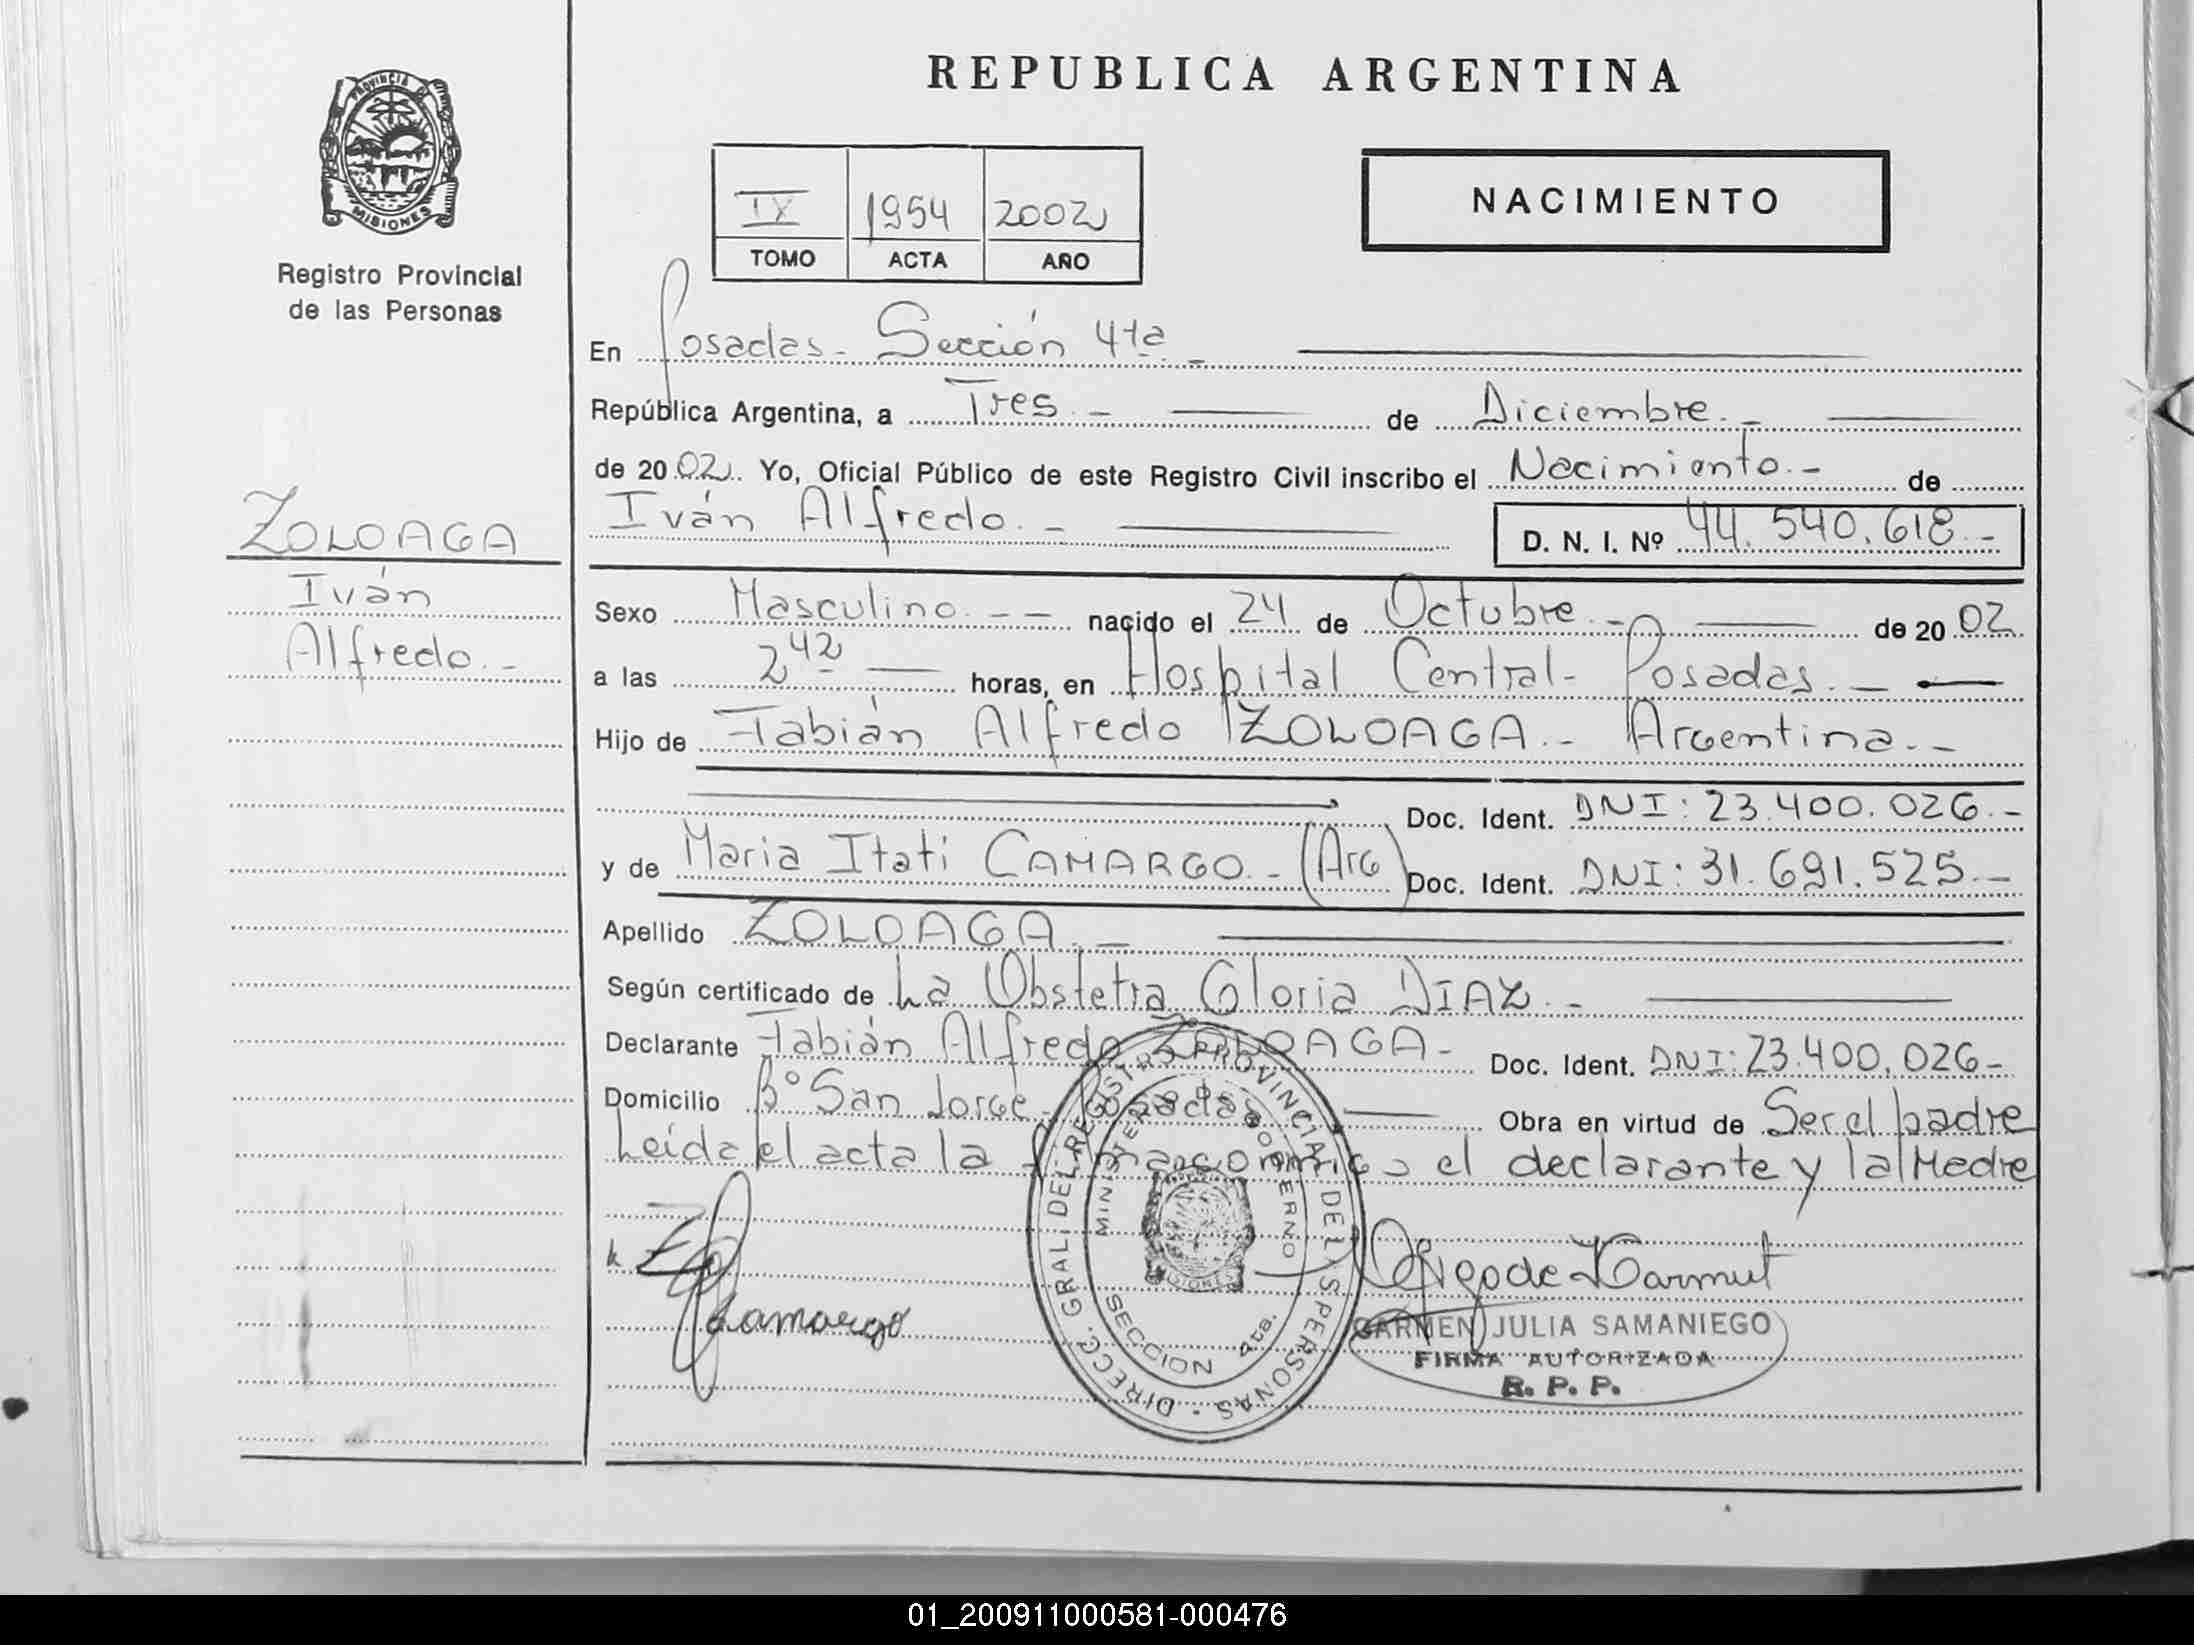 REPUBLICA ARGENTINA
PROVINCIA DE MISIONES
Registro Provincial
de las Personas
IX 1954 2002
TOMO ACTA AÑO
NACIMIENTO
En Posadas - Sección 4ta -
República Argentina, a Tres - de Diciembre -
de 20 02 Yo, Oficial Público de este Registro Civil inscribo el Nacimiento - de
Iván Alfredo. - D. N. I. Nº 44.540.618 -
ZOLOAGA
Iván
Alfredo. -
Sexo Masculino - - nacido el 24 de Octubre - de 20 02
a las 2 42 horas, en Hospital Central - Posadas. -
Hijo de Fabián Alfredo ZOLOAGA. - Argentina. -
Doc. Ident. DNI: 23.400.026. -
y de Maria Itati CAMARGO - (Arg) Doc. Ident. DNI: 31.691.525. -
Apellido ZOLOAGA. -
Según certificado de La Obstetra Gloria DIAZ. -
Declarante Fabián Alfredo ZOLOAGA - Doc. Ident. DNI: 23.400.026 -
Domicilio Bº San Jorge - Posadas Obra en virtud de Ser el padre
Leída el acta la firman conmigo el declarante y la Madre
Camargo
DIRECC. GRAL. DEL REGISTRO PROVINCIAL DE LAS PERSONAS
MINISTERIO DE GOBIERNO
SECCION 4ta.
CARMEN JULIA SAMANIEGO
FIRMA AUTORIZADA
R. P. P.
01_200911000581-000476